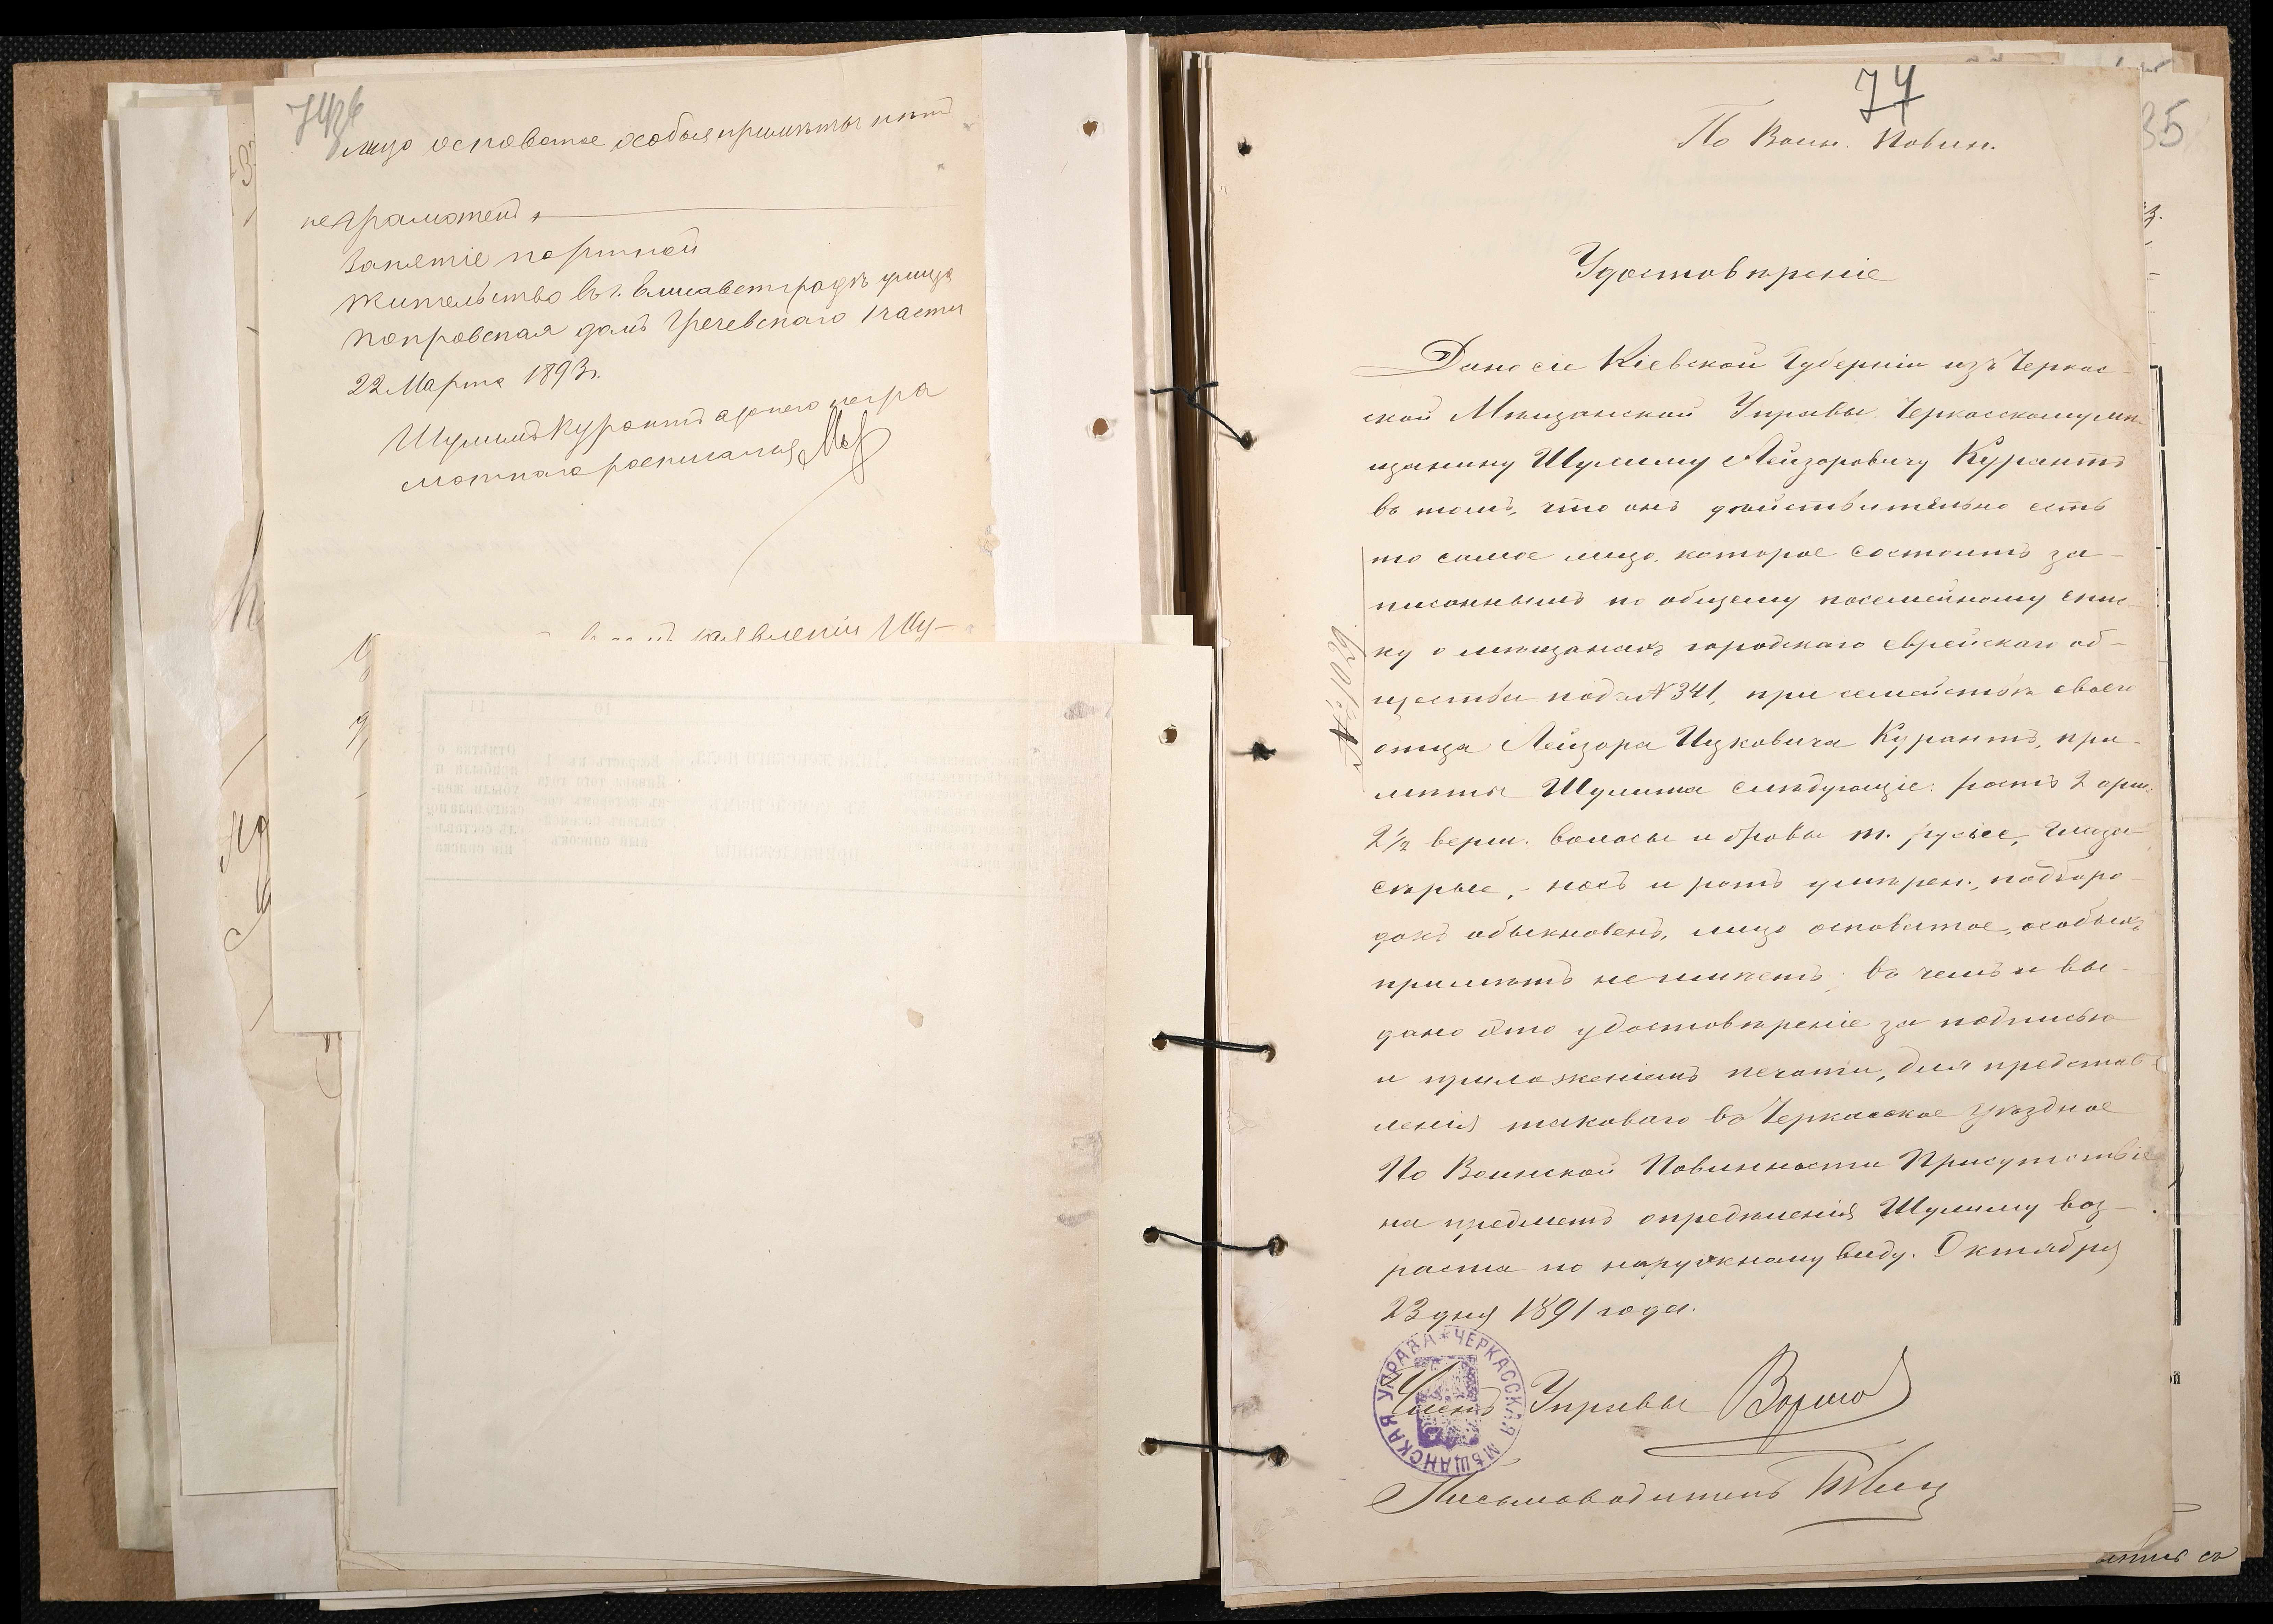 лицо осповатое особыя примѣты нѣтъ
неграмотенъ
Занятіе портной
Жительство въ г. Елисаветградѣ улица
Покровская домъ Гречевскаго 1 части
22 Марта 1893 г.
Шулимъ Курантъ а за него негра
мотнаго росписался
заявленіи Шу-
74
По Воин. Повин.
35
Удостовѣреніе
Дано сіе Кіевской Губерніи изъ Черкас-
ской Мѣщанской Управы Черкасскому мѣ-
щанину Шулиму Лейзоровичу Курантъ
въ томъ, что онъ дѣйствительно есть
то самое лицо, которое состоитъ за-
писаннымъ по общему посемейному спис-
ку о мѣщанахъ городскаго еврейскаго об-
щества подъ № 341, при семействѣ своего
отца Лейзора Ицковича Курантъ, при-
мѣты Шулима слѣдующіе: ростъ 2 арш.
2½ верш. волосы и брови т. русые, глаза
сѣрые, носъ и ротъ умѣрен., подборо-
докъ обыкновенъ, лицо осповатое, особыхъ
примѣтъ не имѣетъ; въ чемъ и вы-
дано это удостовѣреніе за подписью
и приложеніемъ печати, для представ-
ленія таковаго въ Черкасское уѣздное
По Воинской Повинности Присутствіе
на предметъ опредѣленія Шулиму воз-
раста по наружному виду. Октября
23 дня 1891 года.
№ 1029
Членъ Управы
Письмоводитель
ЧЕРКАССКАЯ МѢЩАНСКАЯ УПРАВА